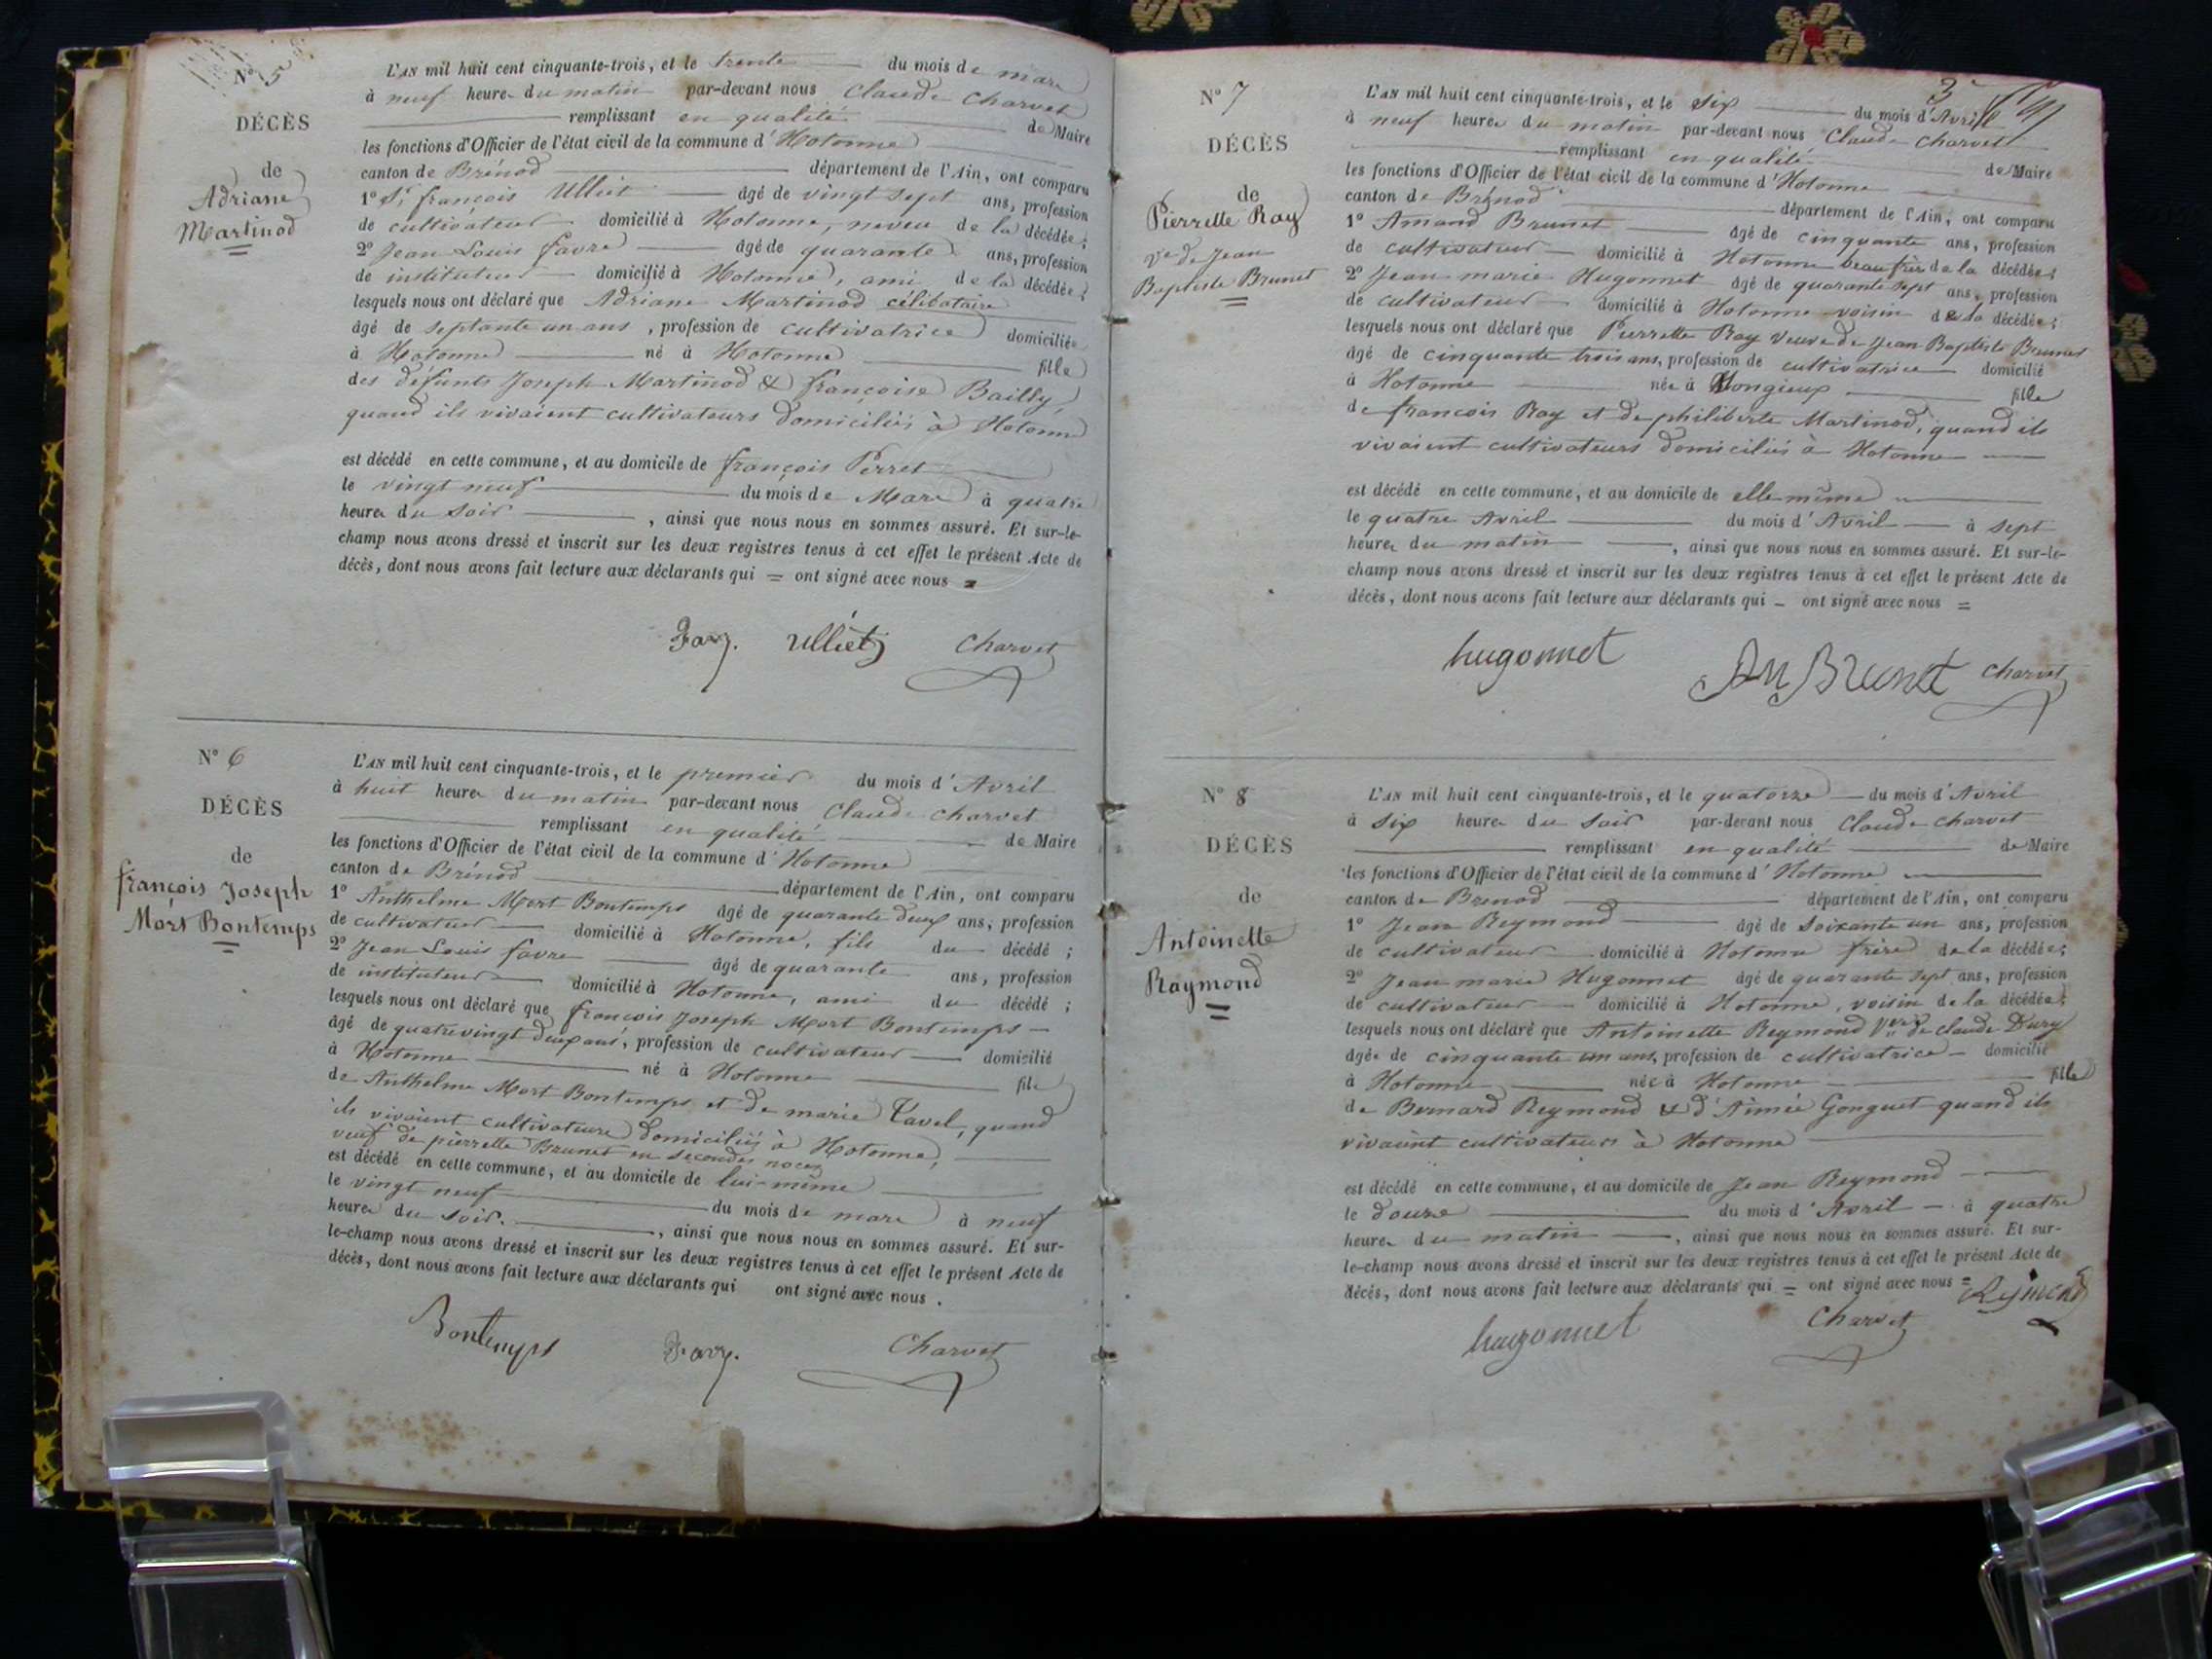 N° 5
DÉCÈS
de
Adriane
Martinod
L'AN mil huit cent cinquante-trois, et le trente du mois de mars
à neuf heures du matin par-devant nous Claude Charvet
remplissant en qualité de Maire
les fonctions d'Officier de l'état civil de la commune d'Hotonne
canton de Brénod département de l'Ain, ont comparu
1° Sr françois Ulliet âgé de vingt sept ans, profession
de cultivateur domicilié à Hotonne, neveu de la décédée;
2° Jean Louis favre âgé de quarante ans, profession
de instituteur domicilié à Hotonne, ami de la décédée;
lesquels nous ont déclaré que Adriane Martinod célibataire
âgé de septante un ans, profession de cultivatrice domiciliée
à Hotonne né à Hotonne fille
des défunts Joseph Martinod & françoise Bailly,
quand ils vivaient cultivateurs domiciliés à Hotonne
est décédé en cette commune, et au domicile de françois Perret
le vingt neuf du mois de Mars à quatre
heures du soir, ainsi que nous nous en sommes assuré. Et sur-le-
champ nous avons dressé et inscrit sur les deux registres tenus à cet effet le présent Acte de
décès, dont nous avons fait lecture aux déclarants qui = ont signé avec nous =
Ulliet Charvet
N° 6
DÉCÈS
de
françois Joseph
Mort Bontemps
L'AN mil huit cent cinquante-trois, et le premier du mois d'Avril
à huit heures du matin par-devant nous Claude Charvet
remplissant en qualité de Maire
les fonctions d'Officier de l'état civil de la commune d'Hotonne
canton de Brénod département de l'Ain, ont comparu
1° Anthelme Mort Bontemps âgé de quarante deux ans, profession
de cultivateur domicilié à Hotonne, fils du décédé;
2° Jean Louis favre âgé de quarante ans, profession
de instituteur domicilié à Hotonne, ami du décédé;
lesquels nous ont déclaré que françois Joseph Mort Bontemps
âgé de quatre vingt deux ans, profession de cultivateur domicilié
à Hotonne né à Hotonne fils
de Anthelme Mort Bontemps et de marie Tavel, quand
ils vivaient cultivateurs domiciliés à Hotonne,
veuf de pierrette Brunet en secondes noces
est décédé en cette commune, et au domicile de lui-même
le vingt neuf du mois de mars à neuf
heures du soir, ainsi que nous nous en sommes assuré. Et sur-
le-champ nous avons dressé et inscrit sur les deux registres tenus à cet effet le présent Acte de
décès, dont nous avons fait lecture aux déclarants qui ont signé avec nous.
Bontemps Charvet
3
N° 7
DÉCÈS
de
Pierrette Ray
ve de Jean
Baptiste Brunet
L'AN mil huit cent cinquante-trois, et le six du mois d'Avril
à neuf heures du matin par-devant nous Claude Charvet
remplissant en qualité de Maire
les fonctions d'Officier de l'état civil de la commune d'Hotonne
canton de Brénod département de l'Ain, ont comparu
1° Amand Brunet âgé de cinquante ans, profession
de cultivateur domicilié à Hotonne beau frère de la décédée;
2° Jean marie Hugonnet âgé de quarante sept ans, profession
de cultivateur domicilié à Hotonne voisin de la décédée;
lesquels nous ont déclaré que Pierrette Ray veuve de Jean Baptiste Brunet
âgé de cinquante trois ans, profession de cultivatrice domicilié
à Hotonne née à Songieux fille
de francois Ray et de philiberte Martinod, quand ils
vivaient cultivateurs domiciliés à Hotonne
est décédé en cette commune, et au domicile de elle même
le quatre Avril du mois d'Avril à sept
heures du matin, ainsi que nous nous en sommes assuré. Et sur-le-
champ nous avons dressé et inscrit sur les deux registres tenus à cet effet le présent Acte de
décès, dont nous avons fait lecture aux déclarants qui — ont signé avec nous =
hugonnet Brunet Charvet
N° 8
DÉCÈS
de
Antoinette
Raymond
L'AN mil huit cent cinquante-trois, et le quatorze du mois d'Avril
à six heures du soir par-devant nous Claude Charvet
remplissant en qualité de Maire
les fonctions d'Officier de l'état civil de la commune d'Hotonne
canton de Brenod département de l'Ain, ont comparu
1° Jean Reymond âgé de soixante un ans, profession
de cultivateur domicilié à Hotonne frère de la décédée;
2° Jean marie Hugonnet âgé de quarante sept ans, profession
de cultivateur domicilié à Hotonne, voisin de la décédée;
lesquels nous ont déclaré que Antoinette Reymond Vve de Claude Dury
âgée de cinquante un ans, profession de cultivatrice domicilié
à Hotonne née à Hotonne fille
de Bernard Reymond & d'Aimée Gonguet quand ils
vivaient cultivateurs à Hotonne
est décédé en cette commune, et au domicile de Jean Reymond
le douze du mois d'Avril à quatre
heures du matin, ainsi que nous nous en sommes assuré. Et sur-
le-champ nous avons dressé et inscrit sur les deux registres tenus à cet effet le présent Acte de
décès, dont nous avons fait lecture aux déclarants qui = ont signé avec nous = Reymond
hugonnet Charvet